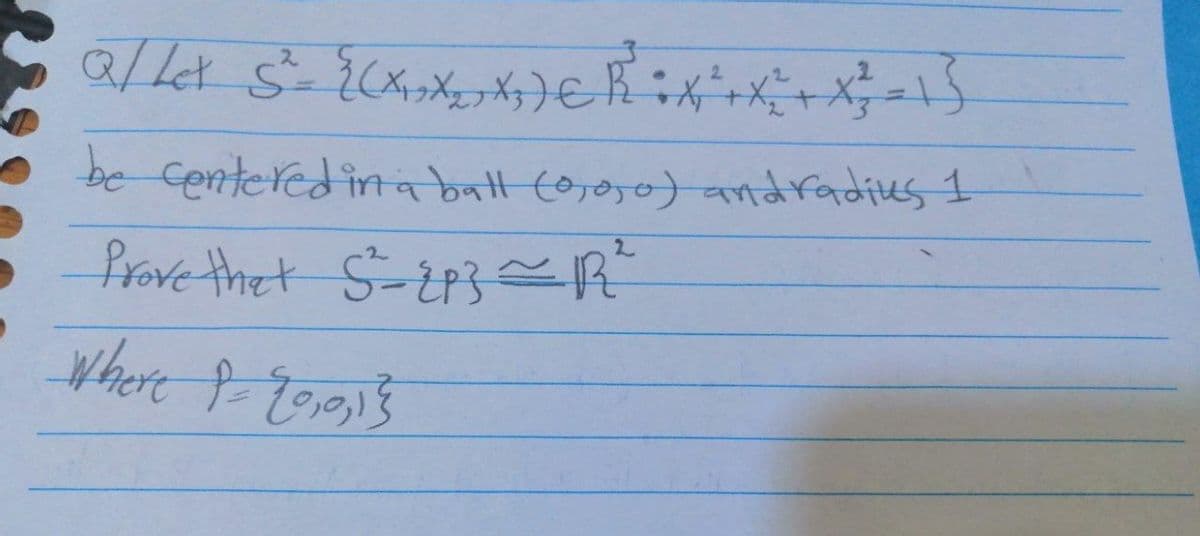 Q/ Let S²= {(X₁,X₂,X₃)∈ R³ : X₁²+X₂²+X₃²=1}
be centered in a ball (0,0,0) and radius 1
Prove that S²-{P} ≅ R²
Where P= {0,0,1}